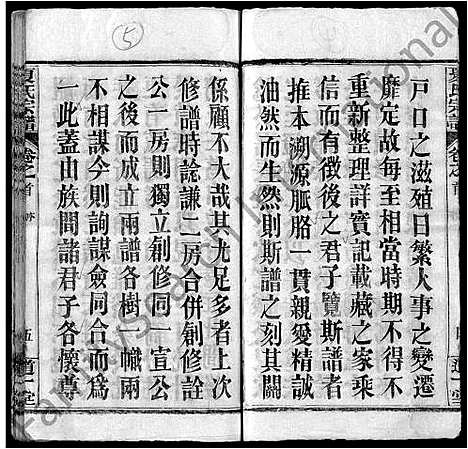 戶口之滋殖日繁人事之變遷
靡定故每至相當時期不得不
重新整理詳實記載藏之家乘
信而有徵後之君子覽斯譜者
推本溯源脈胳一貫親愛精誠
油然而生然則斯譜之刻其關
夏氏宗譜
卷之首
道一堂
係顧不大哉其尤足多者上次
修譜時誌謙二房合併創修詮
公一房則獨立創修同一宣公
之後而成立兩譜各樹一幟兩
不相謀今則詢謀僉同合而為
一此蓋由族間諸君子各懷尊
夏氏宗譜
卷之首
五
道一堂
5